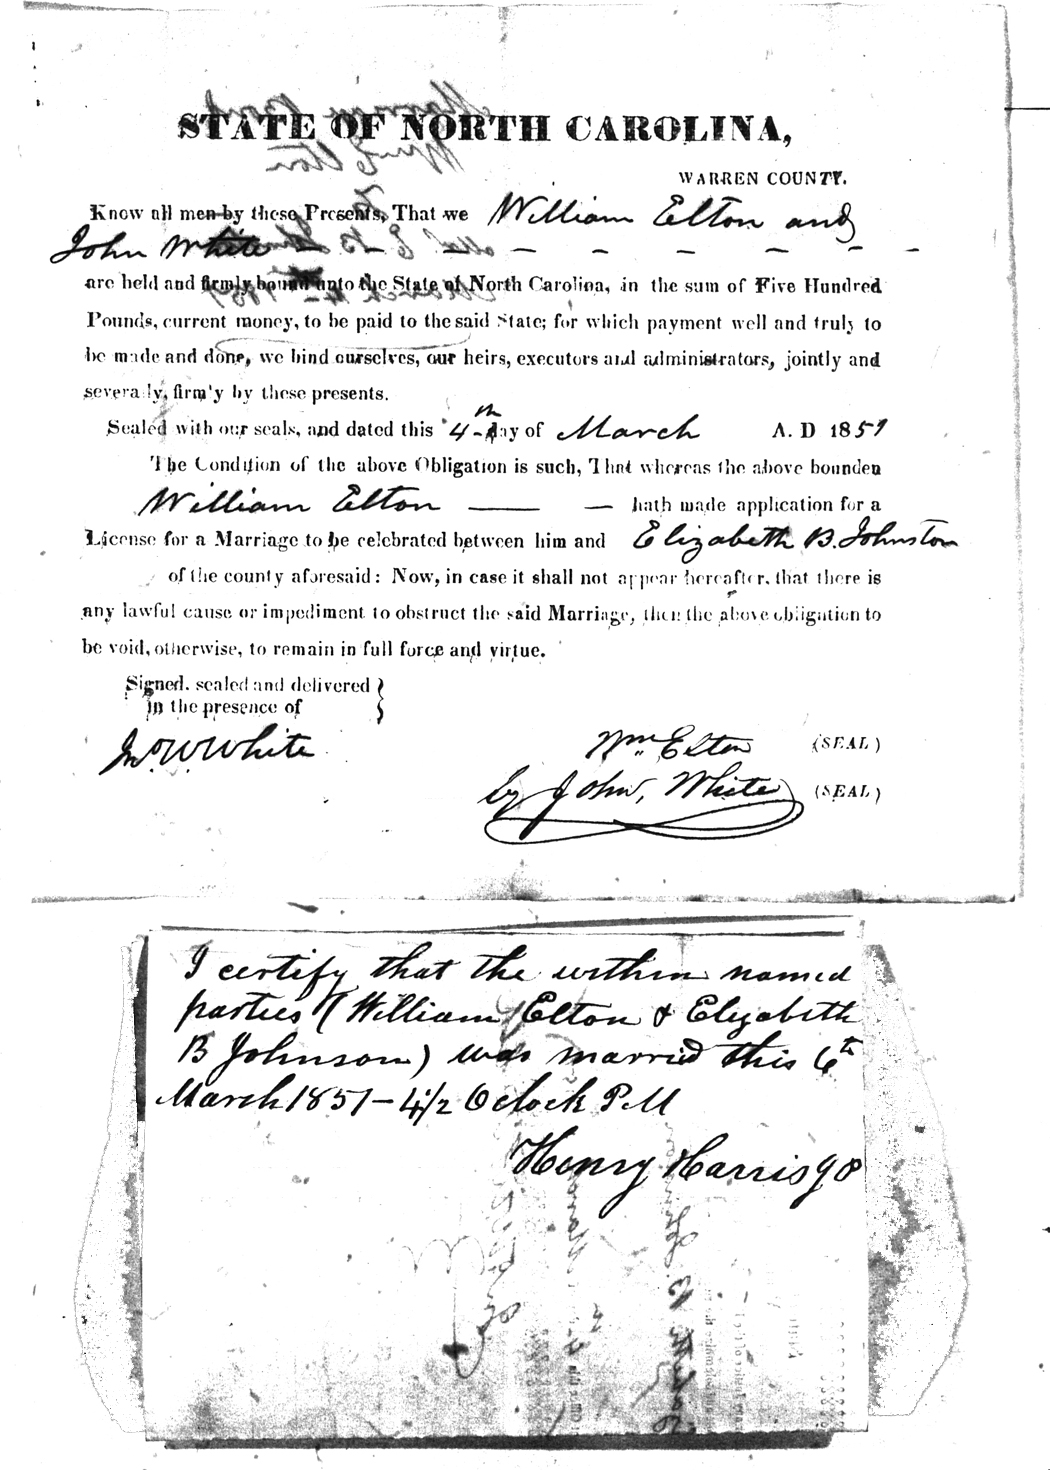 STATE OF NORTH CAROLINA,
WARREN COUNTY.
Know all men by these Presents, That we William Elton and
John White — — — — — —
are held and firmly bound unto the State of North Carolina, in the sum of Five Hundred
Pounds, current money, to be paid to the said State; for which payment well and truly to
be made and done, we bind ourselves, our heirs, executors and administrators, jointly and
severally, firmly by these presents.
Sealed with our seals, and dated this 4th day of March A. D 1851
The Condition of the above Obligation is such, That whereas the above bounden
William Elton — — hath made application for a
License for a Marriage to be celebrated between him and Elizabeth B. Johnston
of the county aforesaid: Now, in case it shall not appear hereafter, that there is
any lawful cause or impediment to obstruct the said Marriage, then the above obligation to
be void, otherwise, to remain in full force and virtue.
Signed, sealed and delivered
in the presence of
Jno W White
Wm Elton (SEAL)
by John, White (SEAL)
I certify that the within named
parties (William Elton & Elizabeth
B Johnson) was married this 6th
March 1851 – 4 1/2 Oclock P.M
Henry Harris JP